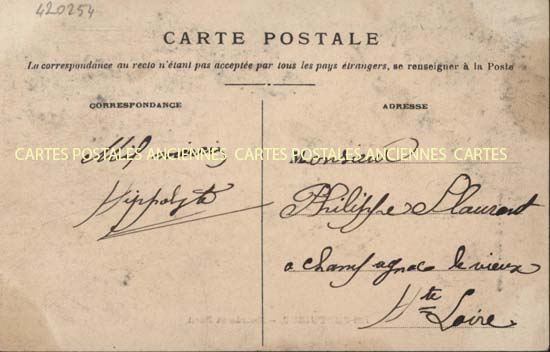 420254
CARTE POSTALE
La correspondance au recto n'étant pas acceptée par tous les pays étrangers, se renseigner à la Poste
CORRESPONDANCE
Hippolyte
ADRESSE
Monsieur
Philippe
a champagnac le vieux
Hte
Loire
CARTES POSTALES ANCIENNES CARTES POSTALES ANCIENNES CARTES